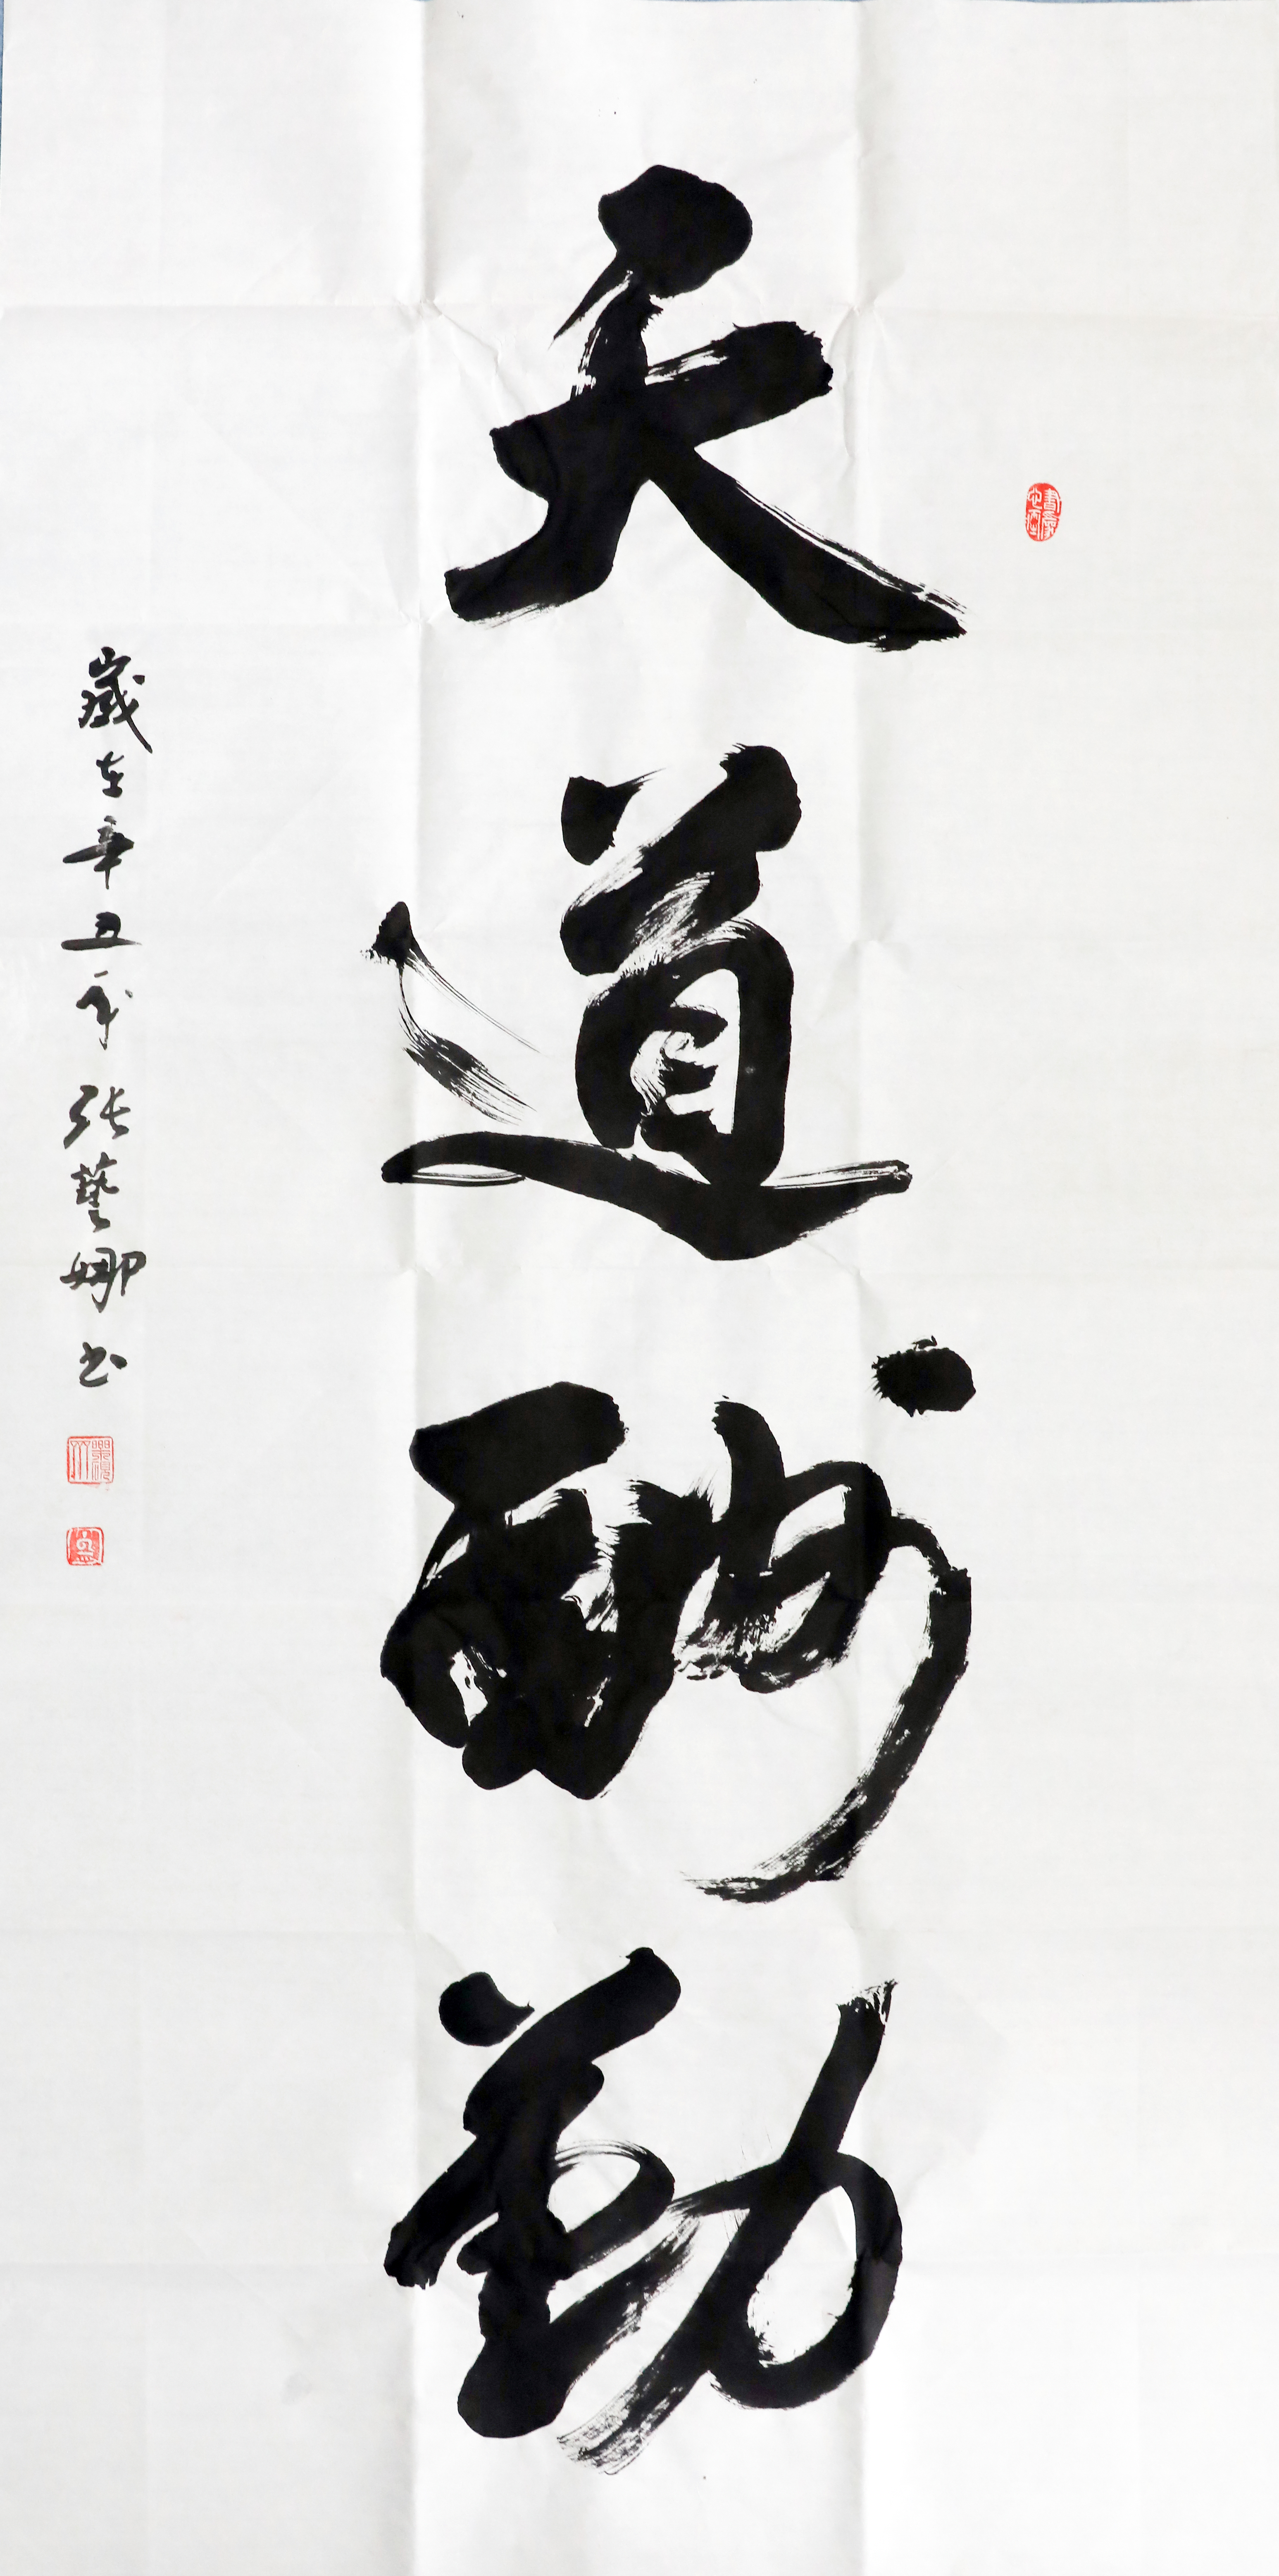 天道酬勤
歲在辛丑年張藝娜书